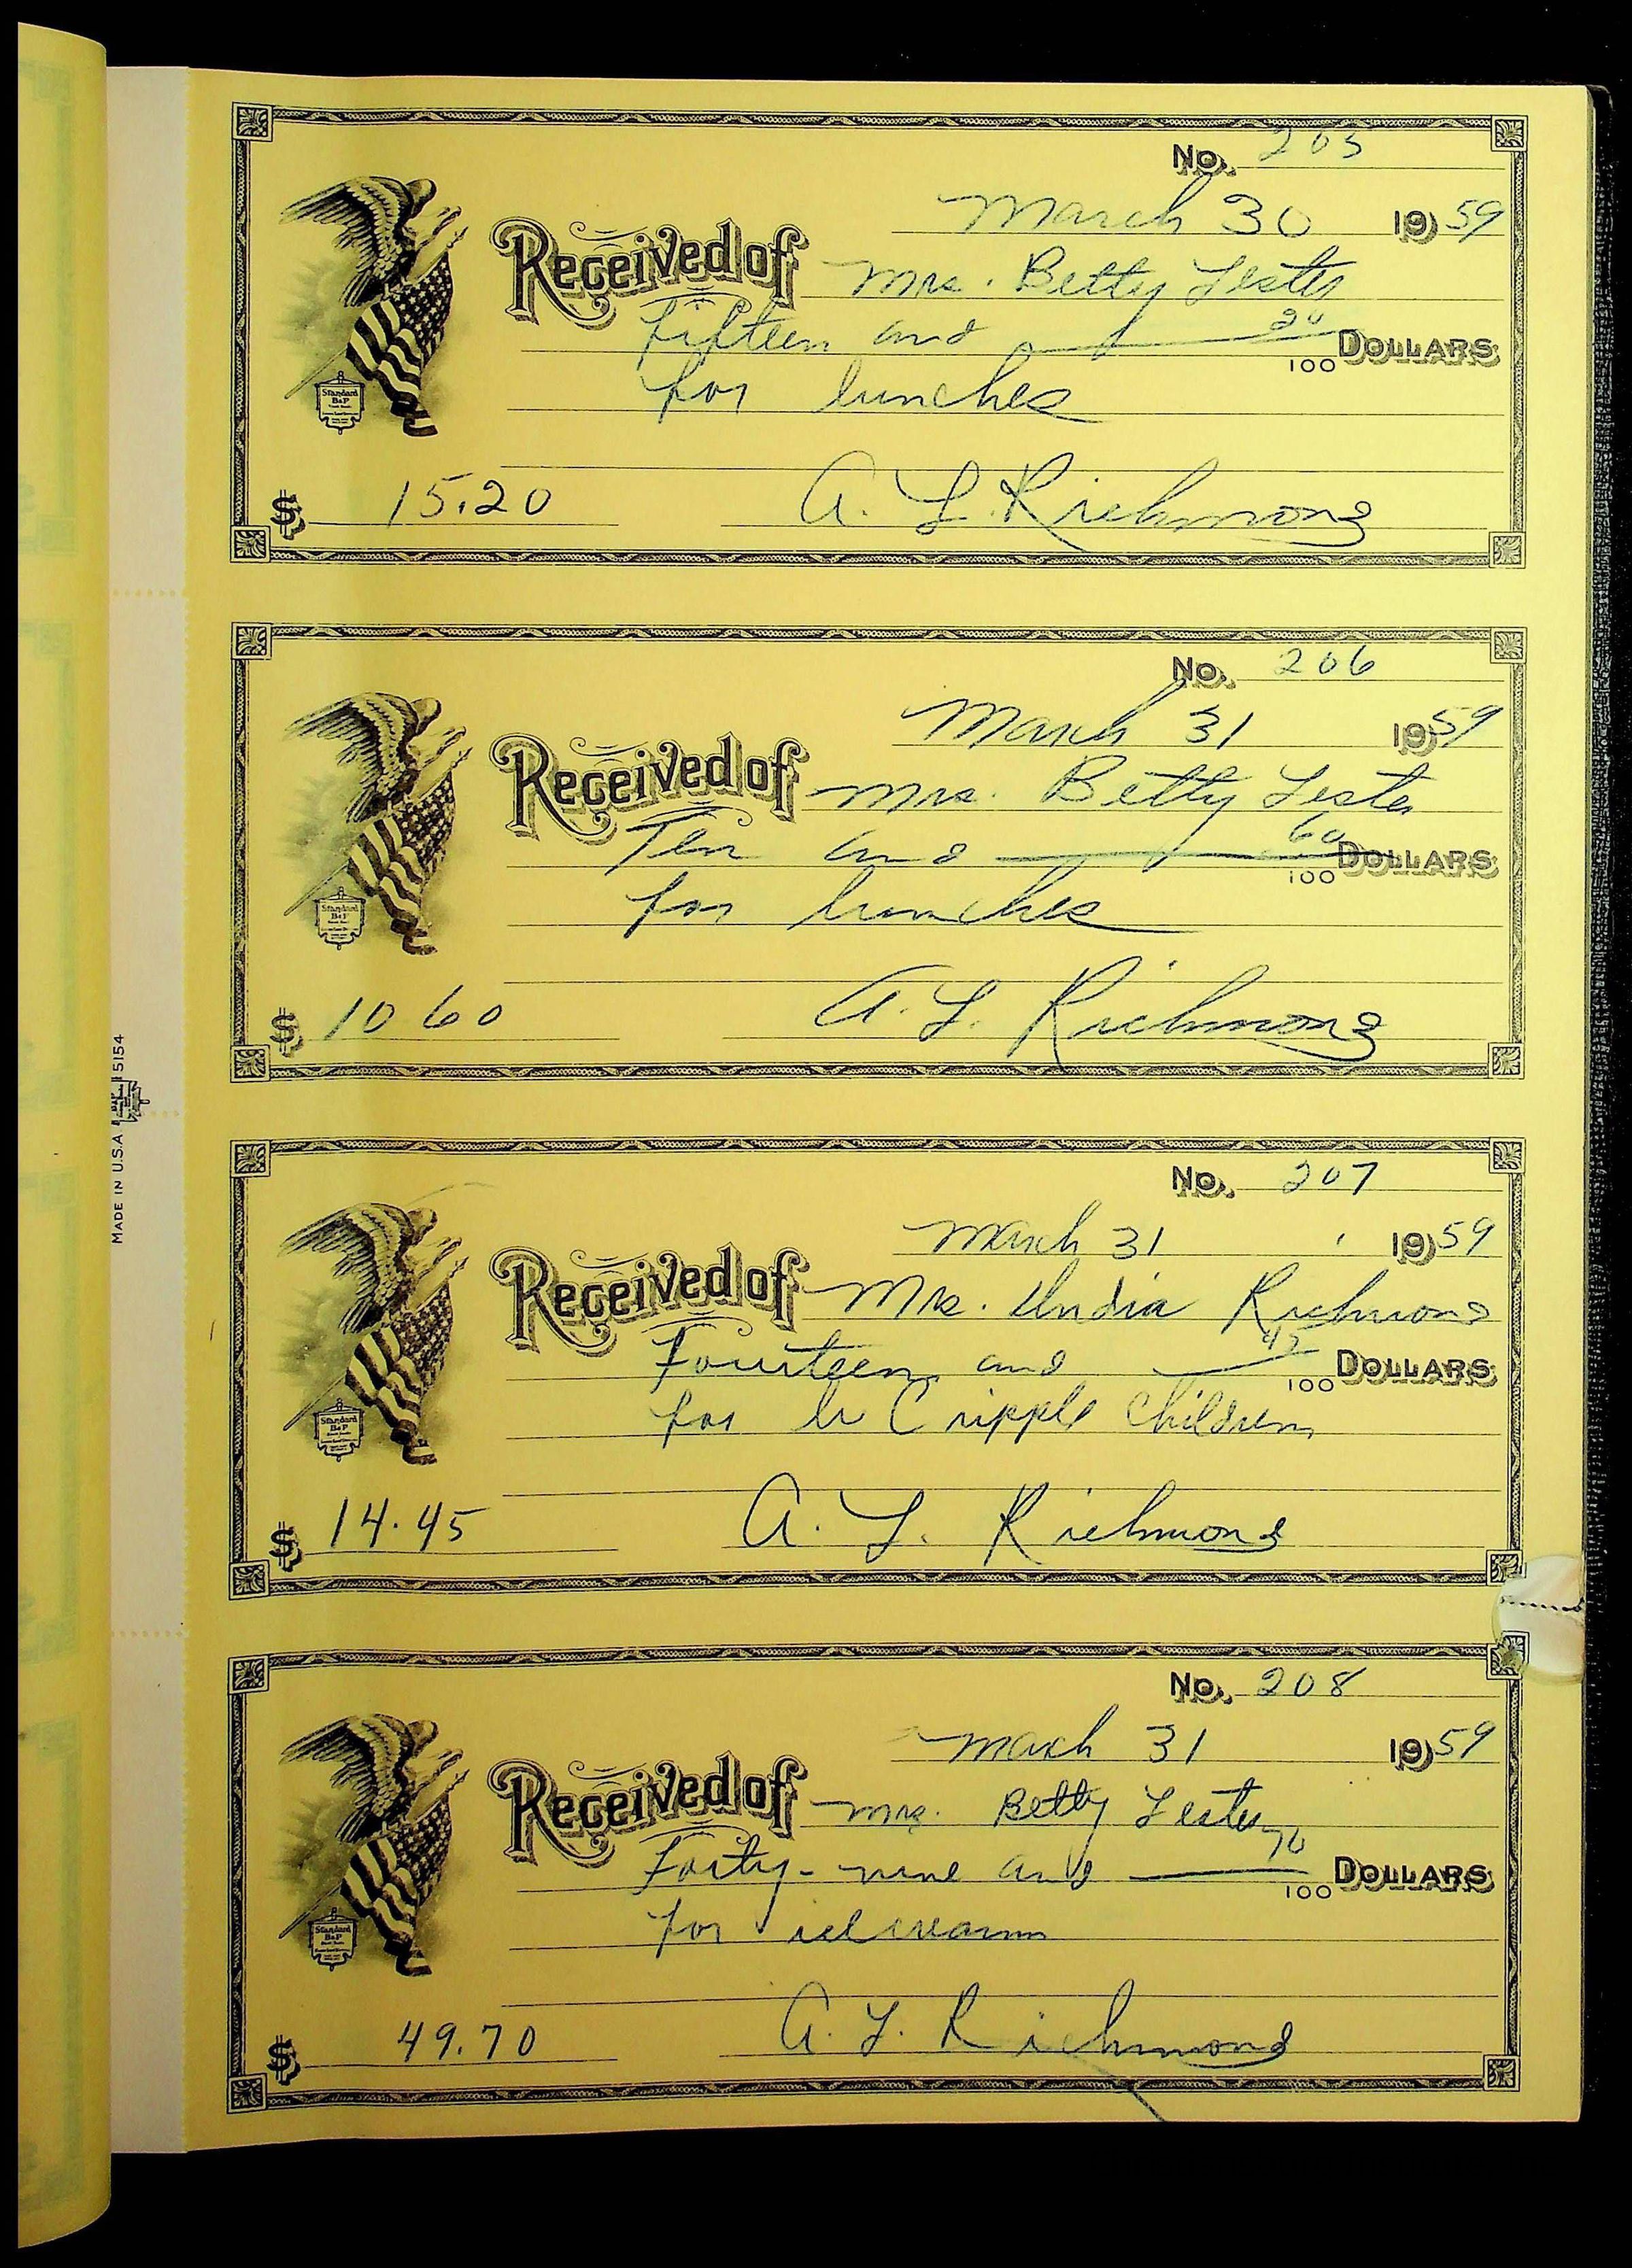 No. 205
March 30 1959
Received of Mrs. Betty Lester
Fifteen and 20/100 DOLLARS
for lunches
$ 15.20 A. L. Richmond
Standard
B&P
No. 206
March 31 1959
Received of Mrs. Betty Lester
Ten and 60/100 DOLLARS
for lunches
$ 10 60 A. L. Richmond
Standard
B&P
MADE IN U.S.A 5154
No. 207
March 31 1959
Received of Mrs. India Richmond
Fourteen and 45/100 DOLLARS
for Cripple Children
$ 14.45 A. L. Richmond
Standard
B&P
No. 208
March 31 1959
Received of Mrs. Betty Lester
Forty-nine and 70/100 DOLLARS
for icecream
$ 49.70 A. L. Richmond
Standard
B&P